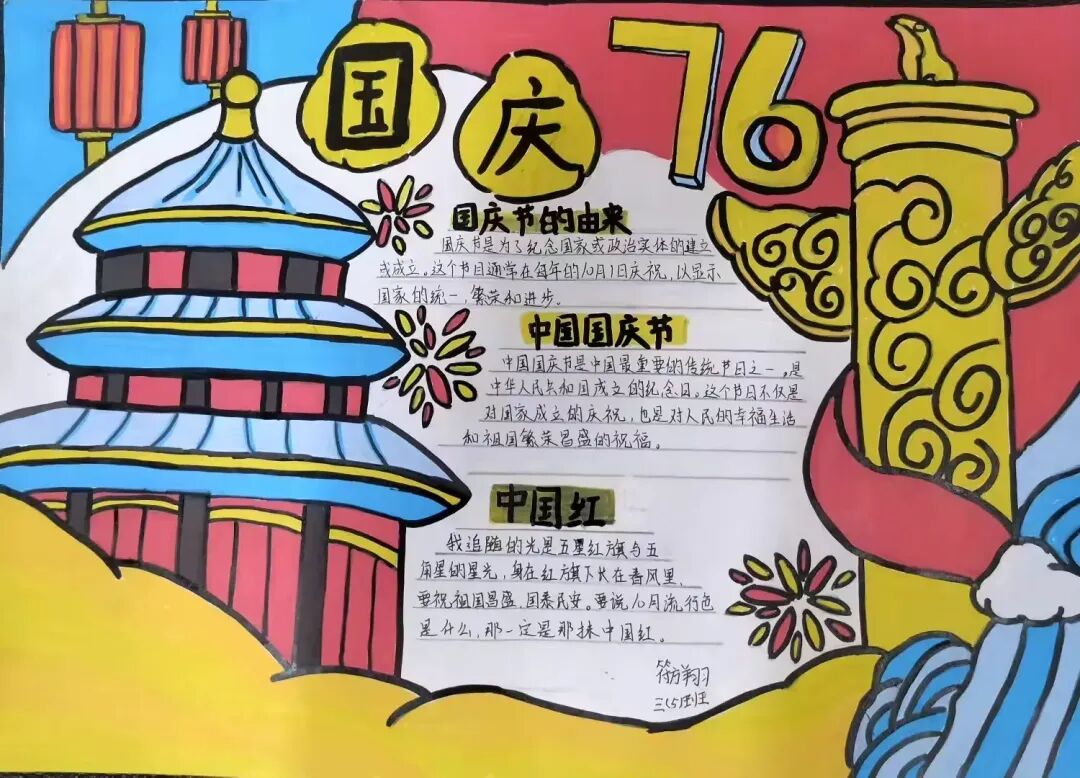 国庆 76
国庆节的由来
国庆节是为了纪念国家或政治实体的建立
或成立。这个节日通常在每年的10月1日庆祝,以显示
国家的统一,繁荣和进步。
中国国庆节
中国国庆节是中国最重要的传统节日之一。是
中华人民共和国成立的纪念日。这个节日不仅是
对国家成立的庆祝,也是对人民的幸福生活
和祖国繁荣昌盛的祝福。
中国红
我追随的光是五星红旗与五
角星的星光,身在红旗下长在春风里,
要祝祖国昌盛,国泰民安。要说10月流行色
是什么,那一定是那抹中国红。
符翔羽
三(5)班